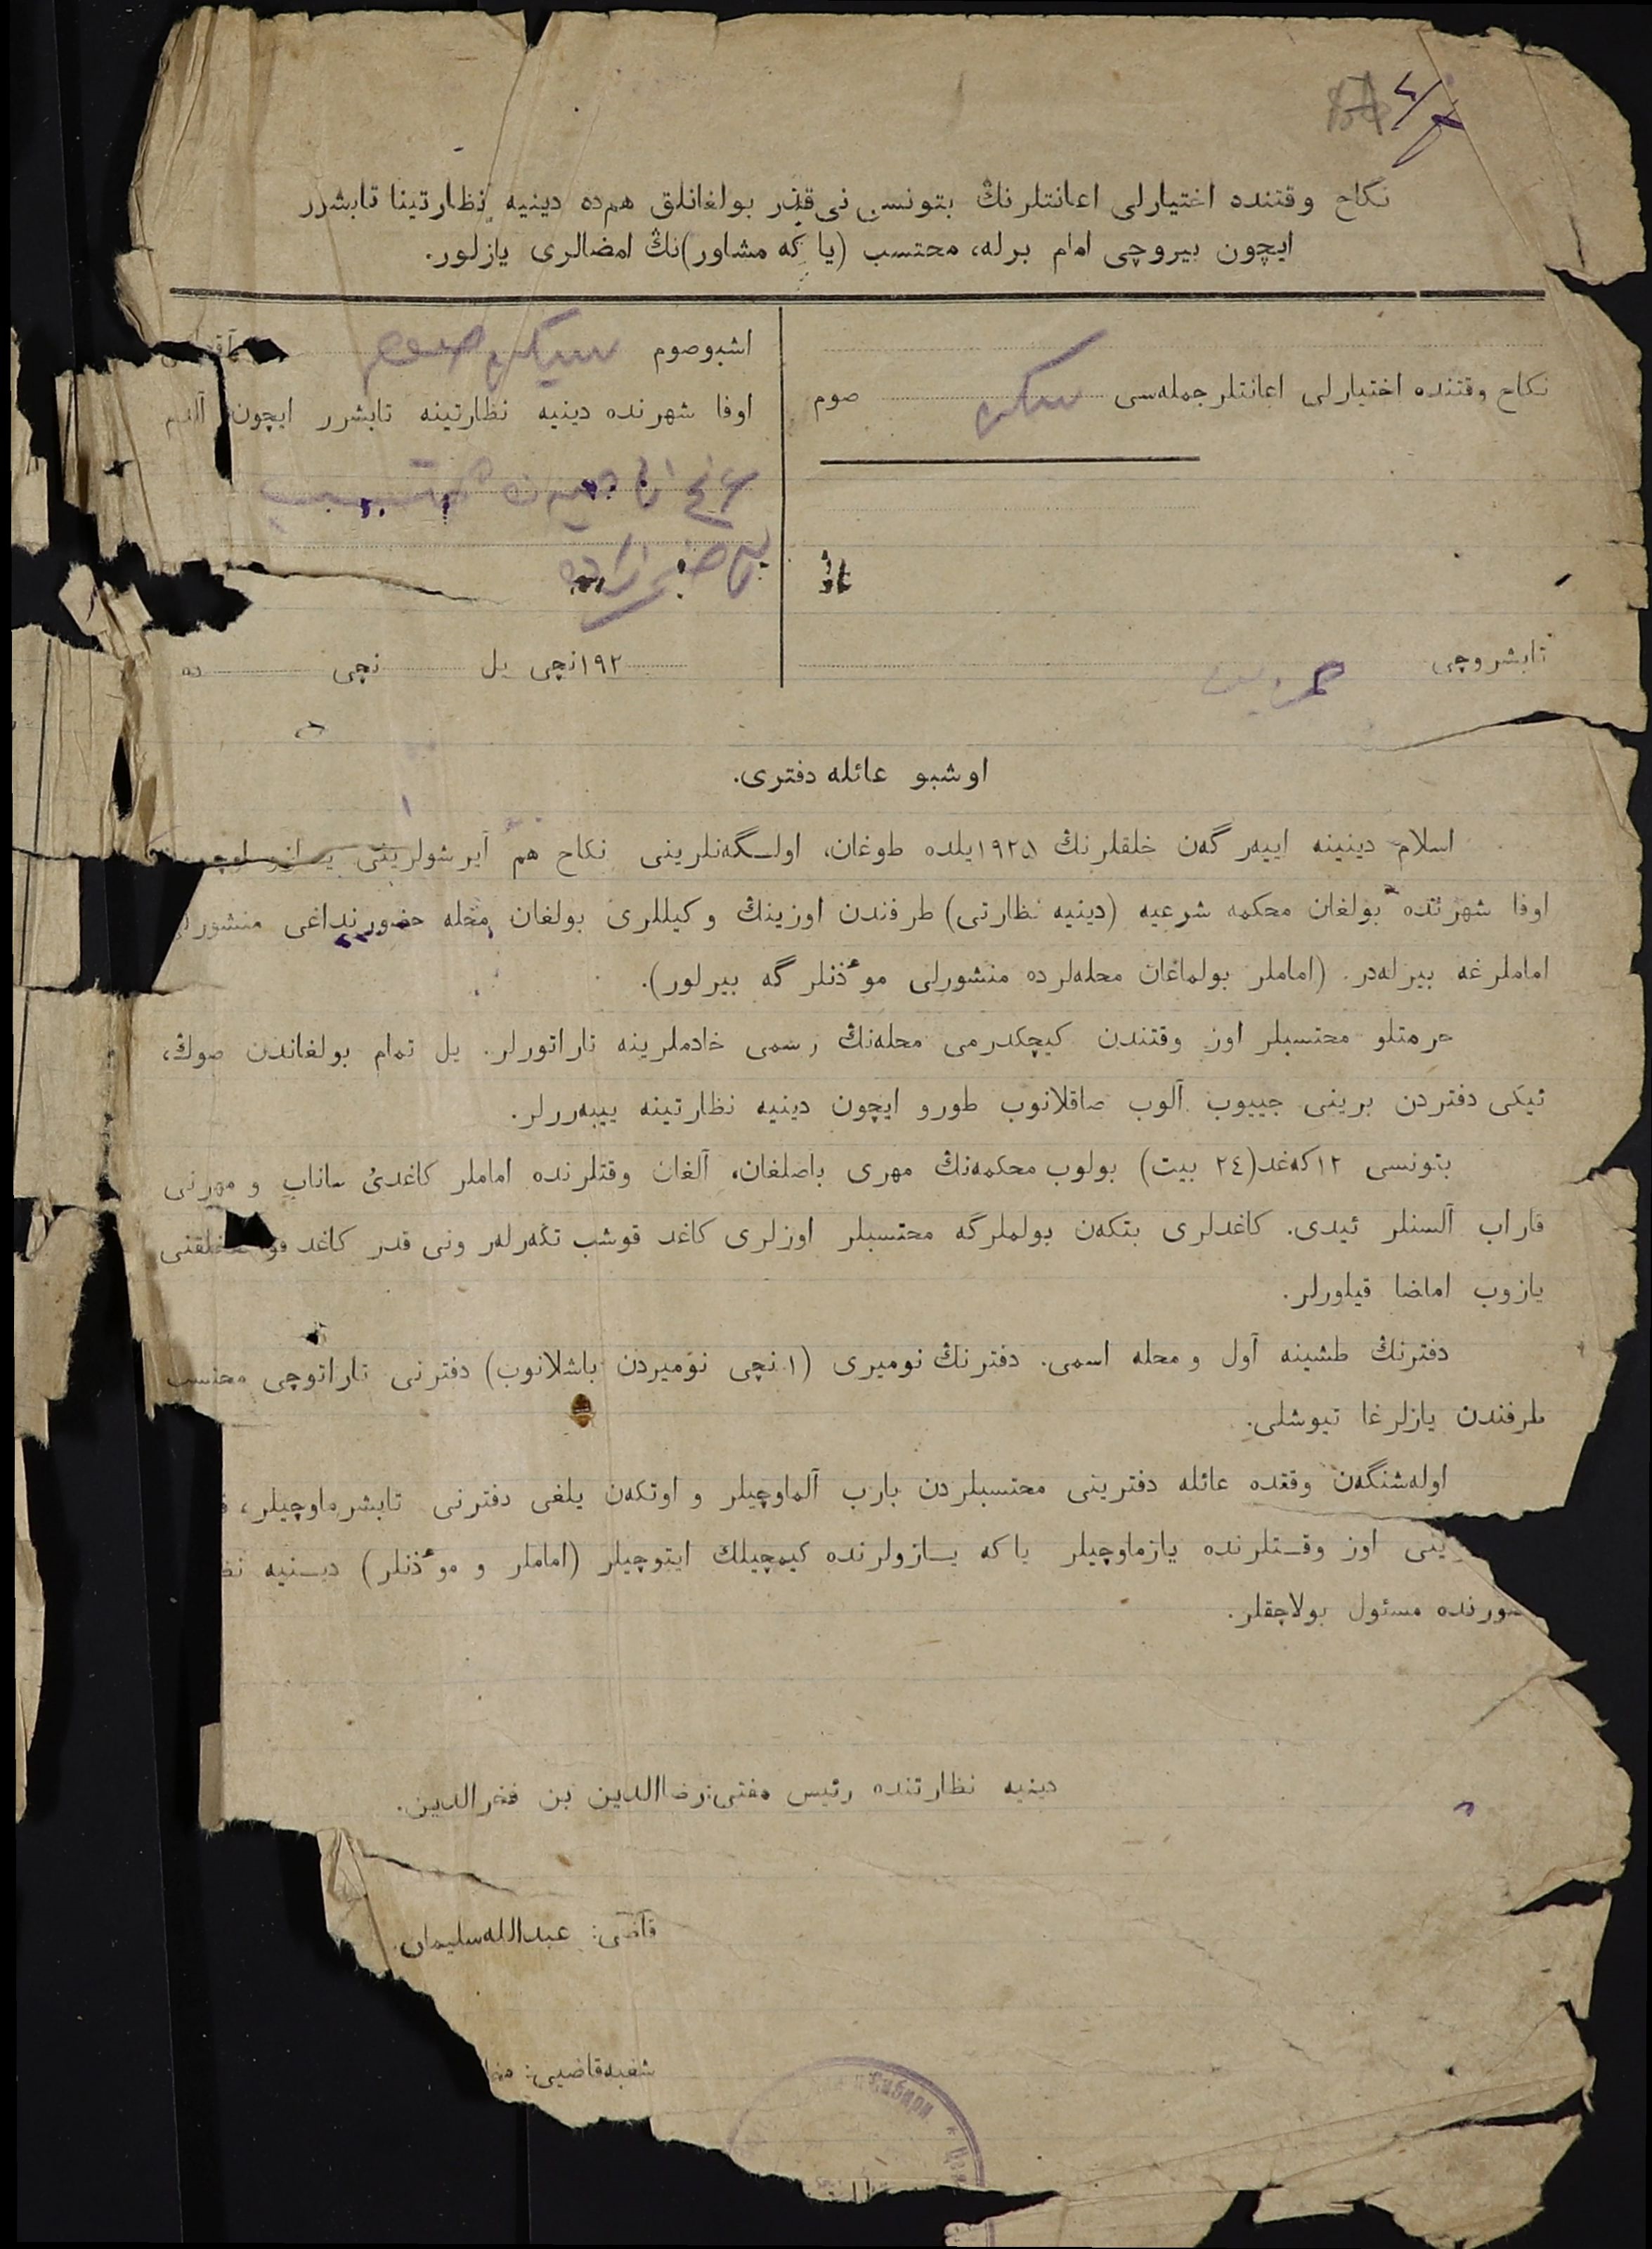 نكاح وقتنده اختيارلى اعانتلرنڭ بتونسى نى‌قدر بولغانلق هم‌ده دينيه نظارتينا تابشرر
ايچون بيروچى امام برله، محتسب (يا كه مشاور)نڭ امضالرى يازلور.
نكاح وقتنده اختيارلى اعانتلر جمله‌سى سكز صوم
تابشروچى
اشبو صوم سيكز صوم
اوفا شهرنده دينيه نظارتينه تابشرر ايچون آلدم
١٩٢ نچى يل نچى ده
اوشبو عائله دفترى.
اسلام دينينه اييەر گەن خلقلرنڭ ١٩٢٥ يلده طوغان، اولـگەنلرينى نكاح هم آيرشولرينى
اوفا شهرنده بولغان محكمه شرعيه (دينيه نظارتى) طرفندن اوزينڭ وكيللرى بولغان محله حضورنداغى منشورلى
اماملرغه بيرلەدر. (اماملر بولماغان محله‌لرده منشورلى موٴذنلر گه بيرلور).
حرمتلو محتسبلر اوز وقتندن كيچكدرمى محله‌نڭ رسمى خادملرينه تاراتورلر. يل تمام بولغاندن صوڭ،
ئيكى دفتردن برينى جييوب آلوب صاقلانوب طورو ايچون دينيه نظارتينه ييبەررلر.
بتونسى ١٢ كەغد (٢٤ بيت) بولوب محكمه‌نڭ مهرى باصلغان، آلغان وقتلرنده اماملر كاغدىٔ ساناب و مهرنى
قاراب آلسنلر ئيدى. كاغدلرى بتكەن بولملرگه محتسبلر اوزلرى كاغد قوشب تگەرلەر ونى قدر كاغد
يازوب اماضا قيلورلر.
دفترنڭ طشينه آول و محله اسمى. دفترنڭ نوميرى (١ نچى نوميردن باشلانوب) دفترنى تاراتوچى محتسب
طرفندن يازلرغا تيوشلى.
اولەشنگەن وقتده عائله دفترينى محتسبلردن بارب آلماوچيلر و اوتكەن يلغى دفترنى تابشرماوچيلر،
اوز وقـتلرنده يازماوچيلر ياكه يـازولرنده كيمچيلك ايتوچيلر (اماملر و موٴذنلر) ديـنيه
مسئول بولاچقلر.
دينيه نظارتنده رئيس مفتى: رضاالدين بن فخرالدين.
قاضى: عبدالله سليمان.
شعبه قاضيى:
Сибири